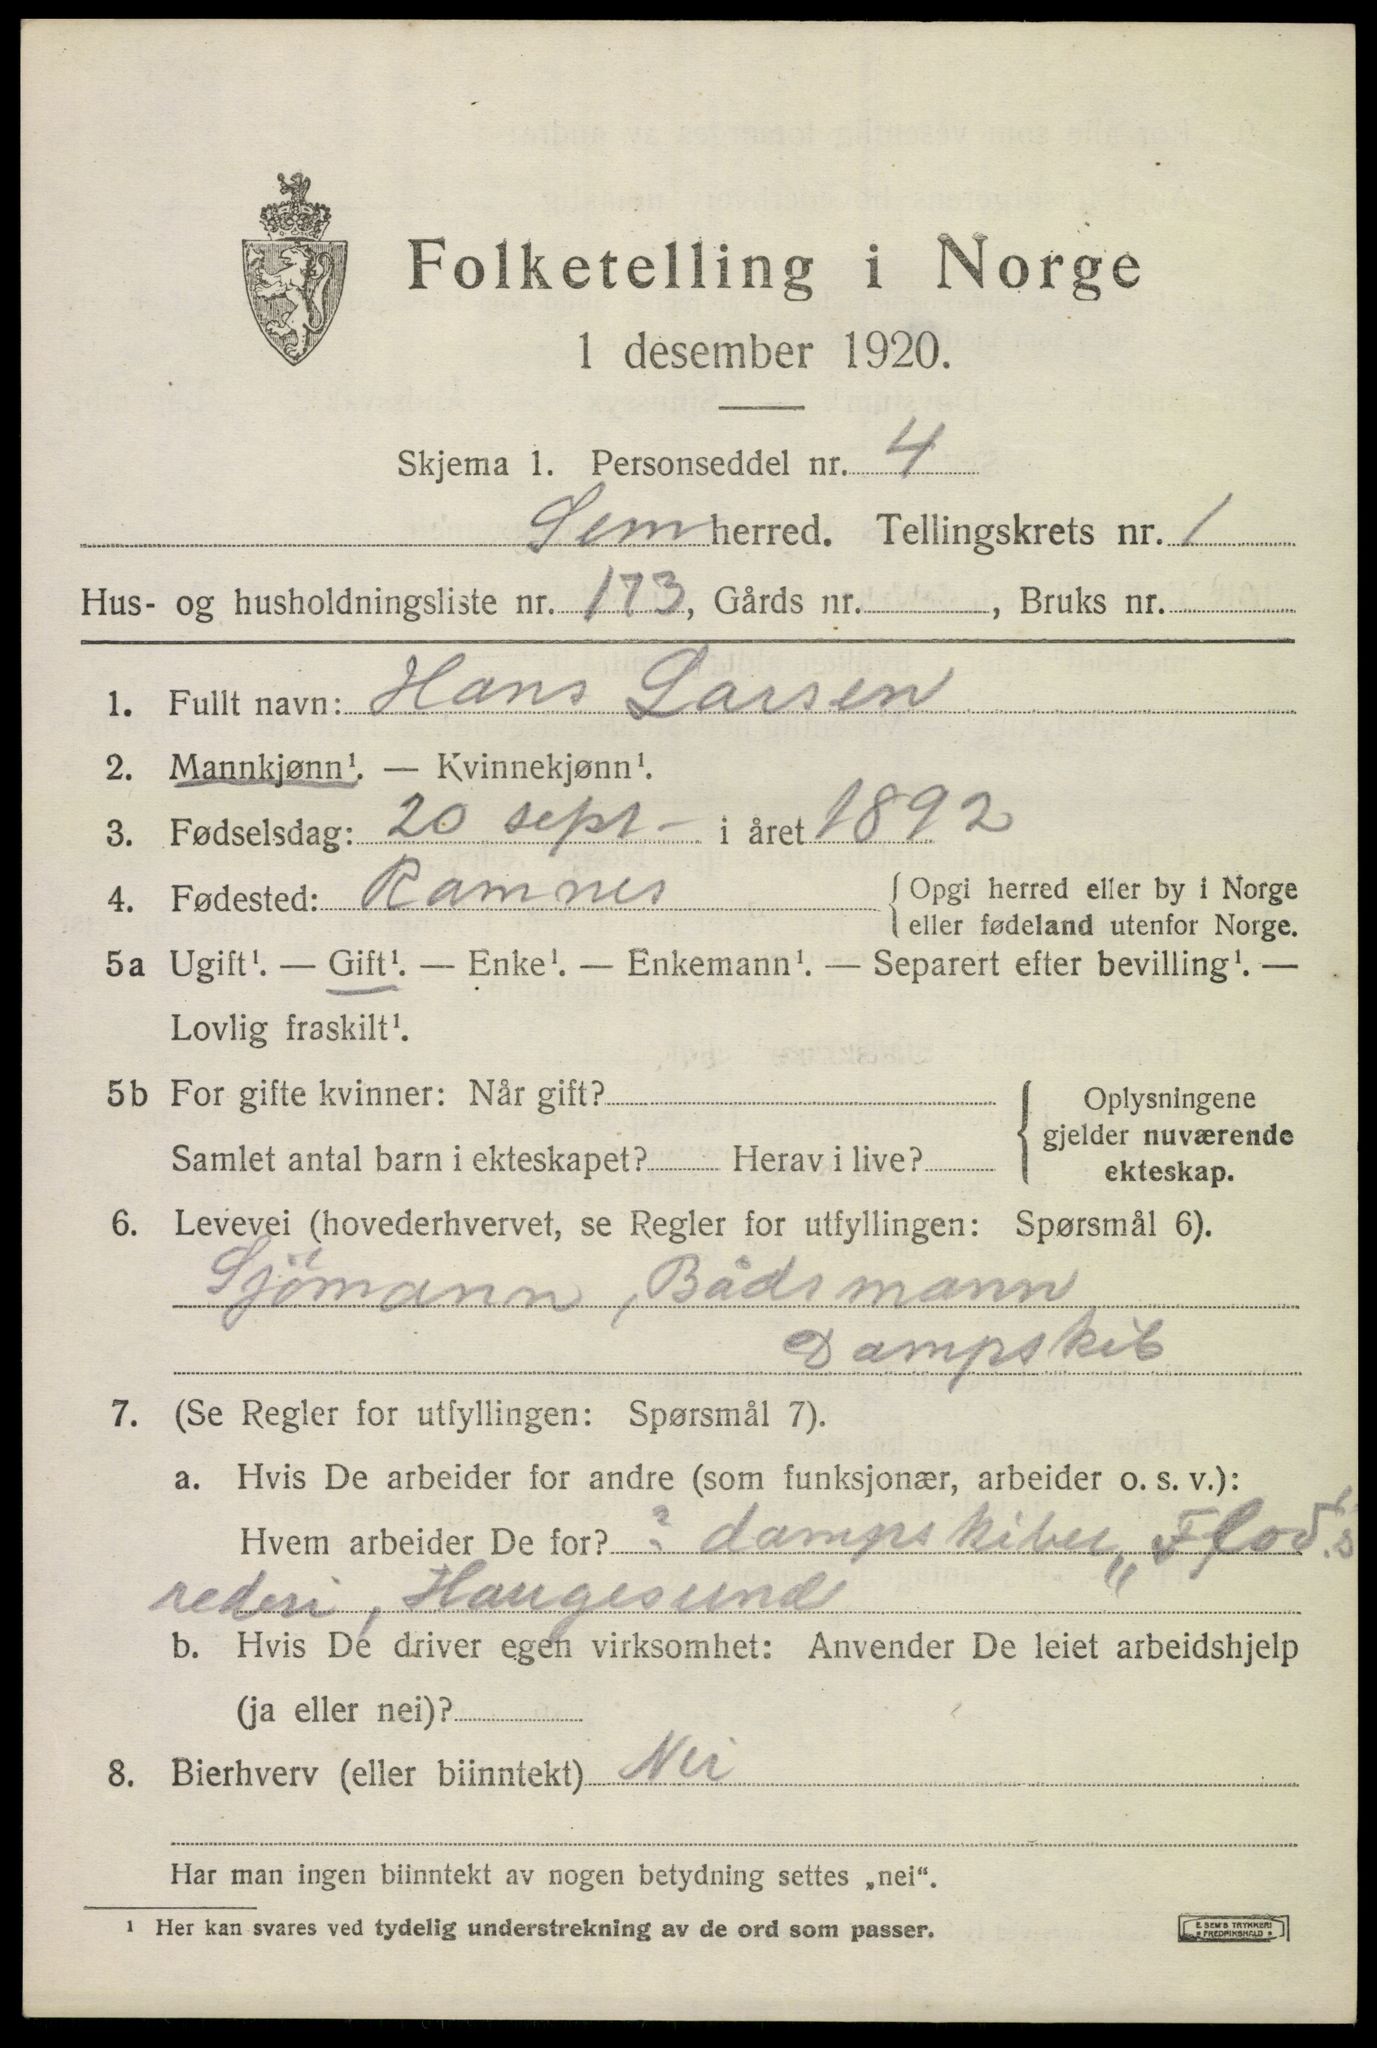 Folketelling i Norge
1 desember 1920.
Skjema 1. Personseddel nr. 4
Sem herred. Tellingskrets nr. 1
Hus- og husholdningsliste nr. 173, Gårds nr. , Bruks nr.
1. Fullt navn: Hans Larsen
2. Mannkjønn¹. — Kvinnekjønn¹.
3. Fødselsdag: 20 sept - i året 1892
4. Fødested: Ramnes {Opgi herred eller by i Norge
eller fødeland utenfor Norge.
5a Ugift¹. — Gift¹. — Enke¹. — Enkemann¹. — Separert efter bevilling¹. —
Lovlig fraskilt¹.
5b For gifte kvinner: Når gift?
Samlet antal barn i ekteskapet? Herav i live?
Oplysningene
gjelder nuværende
ekteskap.
6. Levevei (hovederhvervet, se Regler for utfyllingen: Spørsmål 6).
Sjömann, Bådsmann
Dampskib
7. (Se Regler for utfyllingen: Spørsmål 7).
a. Hvis De arbeider for andre (som funksjonær, arbeider o. s. v.):
Hvem arbeider De for? ? dampskibet „Flod"s
rederi, Haugesund
b. Hvis De driver egen virksomhet: Anvender De leiet arbeidshjelp
(ja eller nei)?
8. Bierhverv (eller biinntekt) Nei
Har man ingen biinntekt av nogen betydning settes „nei“.
¹ Her kan svares ved tydelig understrekning av de ord som passer.
E. SEM'S TRYKKERI
FREDRIKSHALD